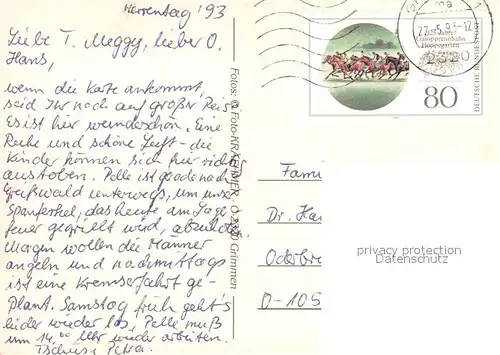 Herrentag '93
Liebe T. Meggy, lieber O.
Hans,
wenn die Karte ankommt,
seid Ihr noch auf großer
Es ist hier wunderschön. Eine
Ruhe und schöne Luft - die
Kinder können sich hier richt
austoben. Pelle ist gerade nach
Greifswald unterwegs, um unser
Spanferkel, das heute am Lage
feuer gegrillt wird, abzuholen
Morgen wollen die Männer
angeln und nachmittags
ist eine Kremserfahrt ge-
plant. Samstag früh geht's
leider wieder los, Pelle muß
um 14.00 Uhr wieder arbeiten.
Tschüssi Petra.
Fotos: © Foto-KRAEHMER, O-2320 Grimmen
125 Jahre
Galopprennbahn
Hoppegarten
80
DEUTSCHE BUNDESPOST
2320
Fami
Dr. Ha
Oderbre
O-105
privacy protection
Datenschutz